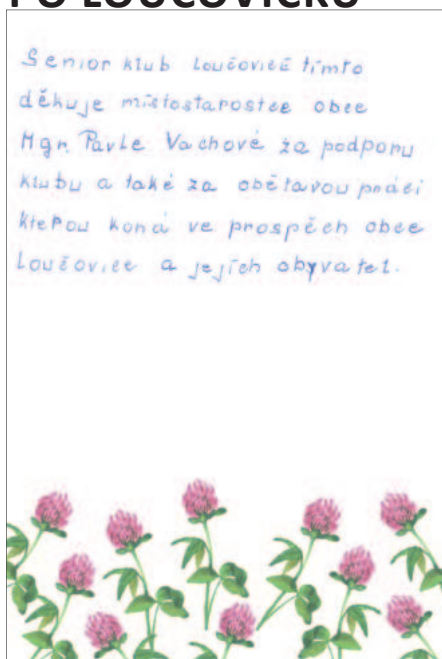 PO LOUČOVICKU
Senior klub Loučovice tímto
děkuje místostarostce obce
Mgr. Pavle Vachové za podporu
klubu a také za obětavou práci
kterou koná ve prospěch obce
Loučovice a jejích obyvatel.